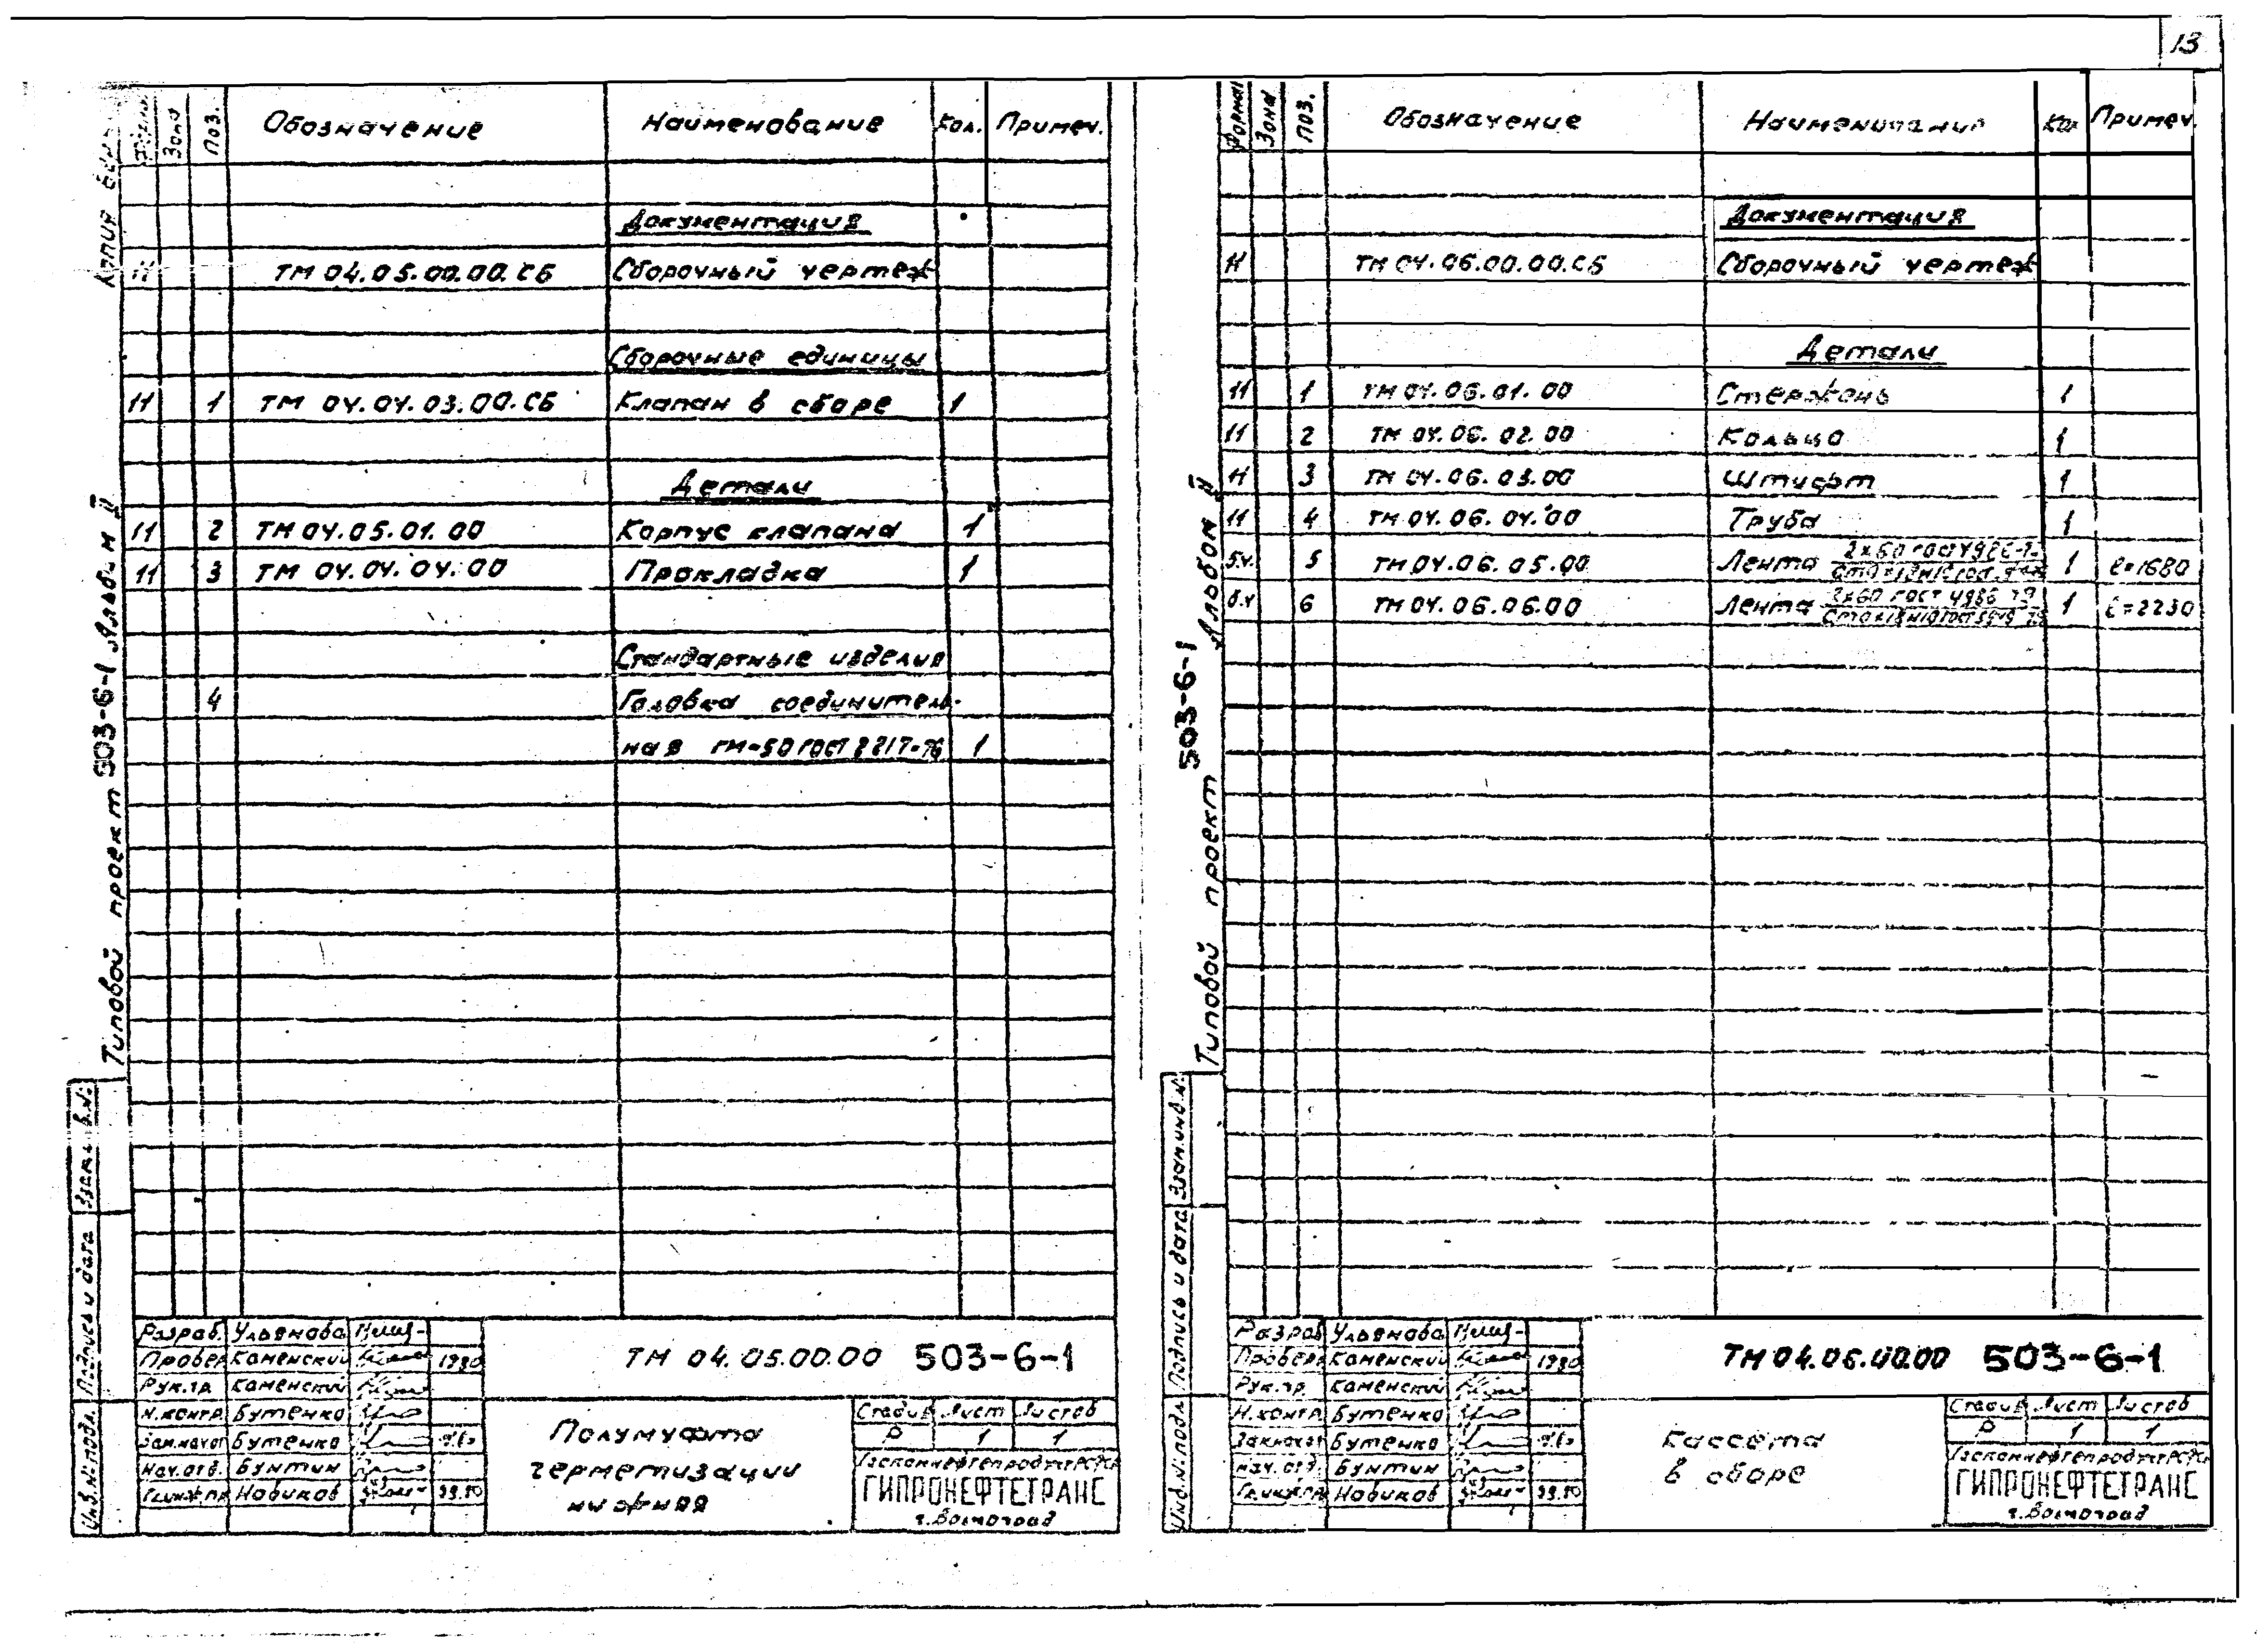 13
Формат Зона Поз. Обозначение Наименование Кол. Примеч.
Документация
11 ТМ 04.05.00.00.СБ Сборочный чертеж
Сборочные единицы
11 1 ТМ 04.04.03.00.СБ Клапан в сборе 1
Детали
11 2 ТМ 04.05.01.00 Корпус клапана 1
11 3 ТМ 04.04.04.00 Прокладка 1
Стандартные изделия
4 Головка соединитель-
ная ГМ-50 ГОСТ 2217-76 1
Копия
Типовой проект 503-6-1 Альбом II
Взам. в.N:
Подпись и дата
Инв.N:подл.
Разраб. Ульянова
Провер Каменский 1980
Рук.гр. Каменский
Н.контр. Бутенко
Зам.нач.от Бутенко
Нач.отд. Бунтин
Гл.инж.пр. Новиков
ТМ 04.05.00.00 503-6-1
Полумуфта
герметизации
нижняя
Стадия Лист Листов
Р 1 1
Госкомнефтепродукт РСФСР
ГИПРОНЕФТЕТРАНС
г.Волгоград
Формат Зона Поз. Обозначение Наименование Кол Примеч.
Документация
11 ТМ 04.06.00.00.СБ Сборочный чертеж
Детали
11 1 ТМ 04.06.01.00 Стержень 1
11 2 ТМ 04.06.02.00 Кольцо 1
11 3 ТМ 04.06.03.00 Штифт 1
11 4 ТМ 04.06.04.00 Труба 1
б.ч. 5 ТМ 04.06.05.00 Лента 2х60 ГОСТ 4986-79 1 ℓ=1680
б.ч 6 ТМ 04.06.06.00 Лента 2х60 ГОСТ 4986-79 1 ℓ=2230
Типовой проект 503-6-1 Альбом II
Взам.инв.N:
Подпись и дата
Инв.N:подл
Разраб Ульянова
Провер. Каменский 1980
Рук.гр. Каменский
Н.контр. Бутенко
Зам.нач.от Бутенко
Нач.отд. Бунтин
Гл.инж.пр. Новиков
ТМ 04.06.00.00 503-6-1
Кассета
в сборе
Стадия Лист Листов
Р 1 1
Госкомнефтепродукт РСФСР
ГИПРОНЕФТЕТРАНС
г.Волгоград